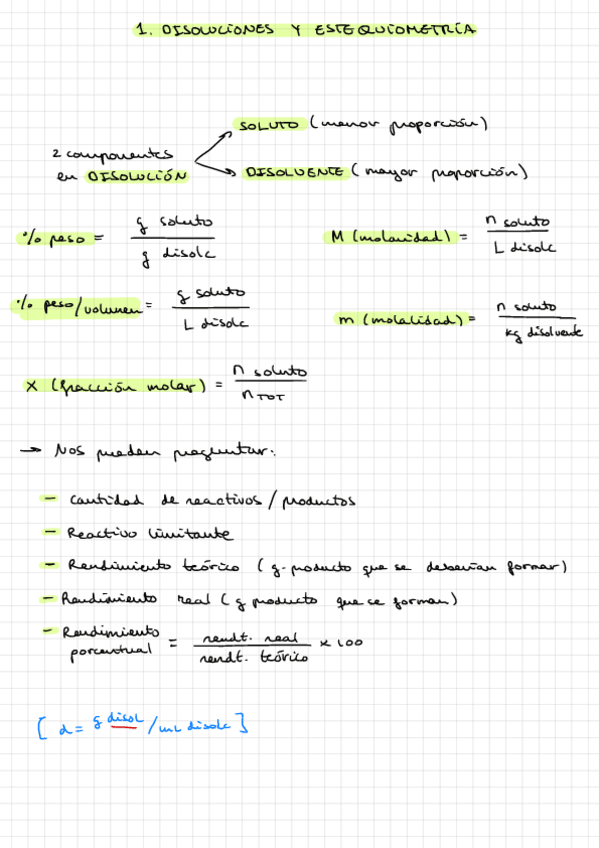 1. DISOLUCIONES Y ESTEQUIOMETRÍA
SOLUTO (menor proporción)
2 componentes
en DISOLUCIÓN
DISOLVENTE (mayor proporción)
% peso = g soluto / g disolc
M (molaridad) = n soluto / L disolc
% peso/volumen = g soluto / L disolc
m (molalidad) = n soluto / kg disolvente
X (fracción molar) = n soluto / n TOT
→ Nos pueden preguntar:
- Cantidad de reactivos / productos
- Reactivo limitante
- Rendimiento teórico (g. producto que se deberían formar)
- Rendimiento real (g producto que se forman)
- Rendimiento porcentual = rendt. real / rendt. teórico x 100
[ d = g disol / mL disolc ]